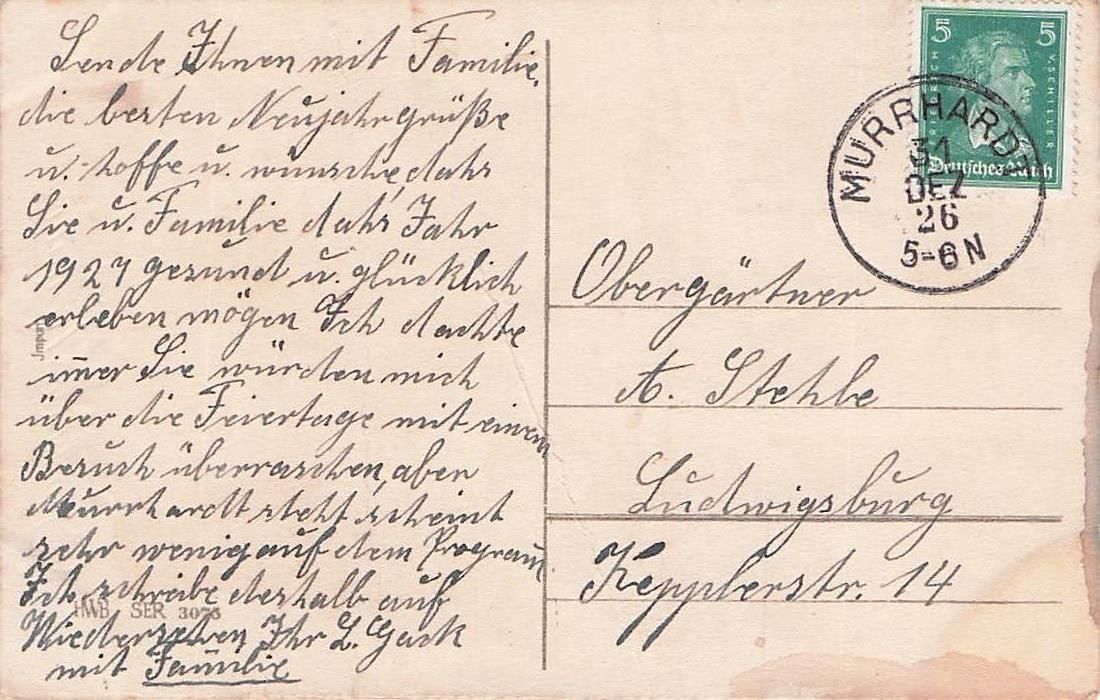 Sende Ihnen mit Familie
die besten Neujahrgrüße
u. hoffe u. wünsche, dahs
Sie u. Familie dahs Jahr
1927 gesund u. glücklich
erleben mögen Ich dachte
im̅er Sie würden mich
über die Feiertage mit einem
Besuch überraschen, aber
Murrhardt steht scheint
sehr wenig auf dem Program
Ich schreibe deshalb auf
Wiedersehen Ihr L. Gack
mit Familie
Jmpurt
HWB SER 3075
5 5
FRIEDRICH V. SCHILLER
Deutsches Reich
MURRHARDT
31
DEZ
26
5-6 N
Obergärtner
A. Stehle
Ludwigsburg
Kepplerstr. 14